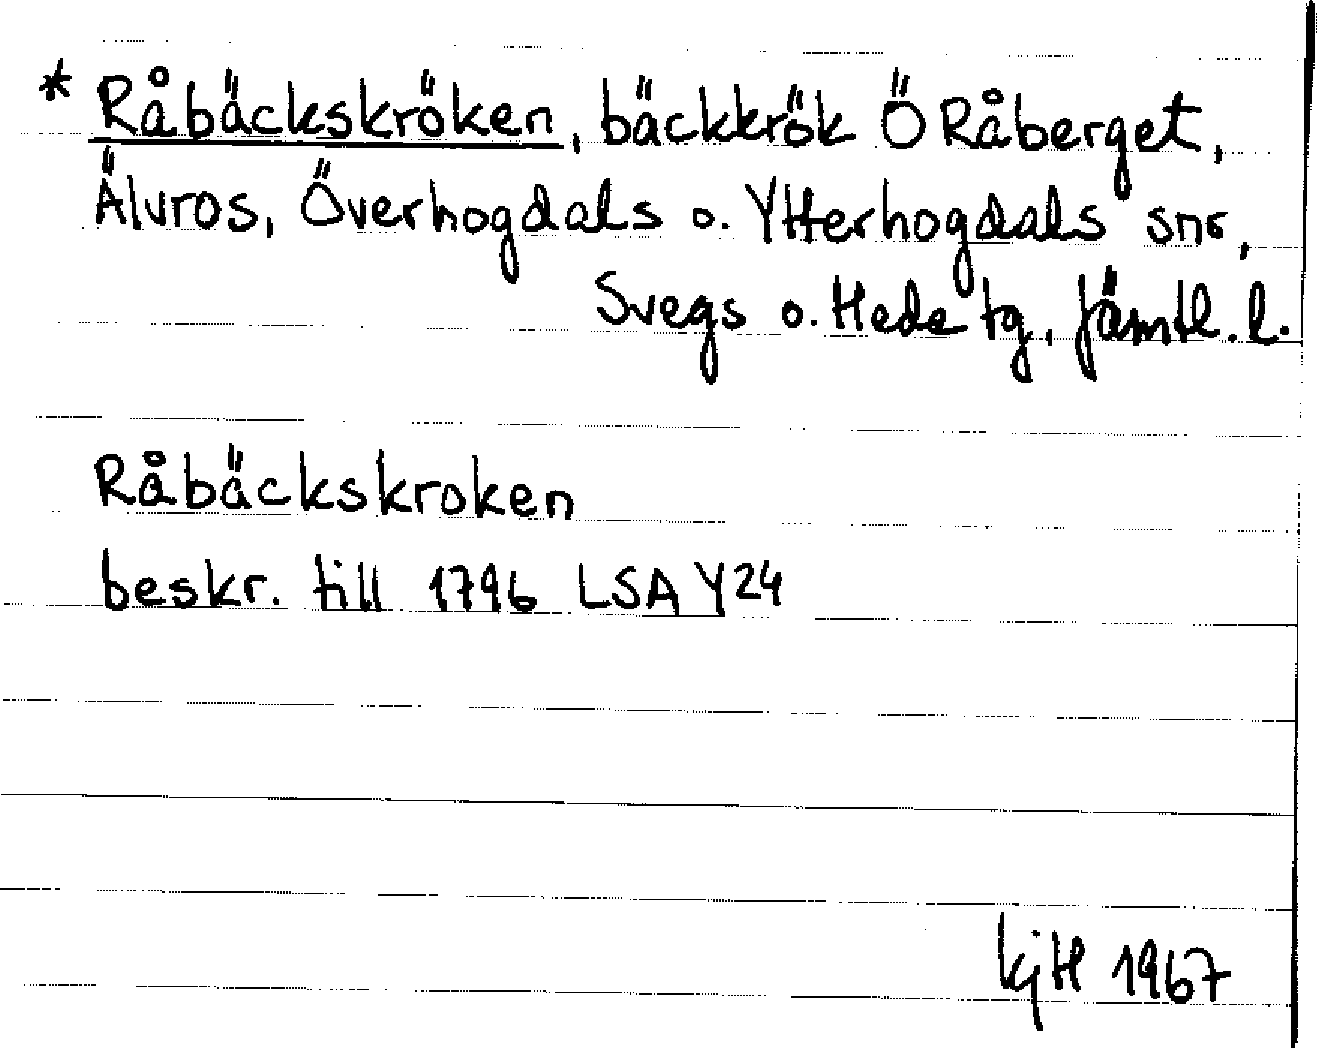 * Råbäckskröken, bäckkrök Ö Råberget,
Älvros, Överhogdals o. Ytterhogdals snr,
Svegs o. Hede tg, Jämtl. l.
Råbäckskroken
beskr. till 1796 LSA Y24
KjH 1967